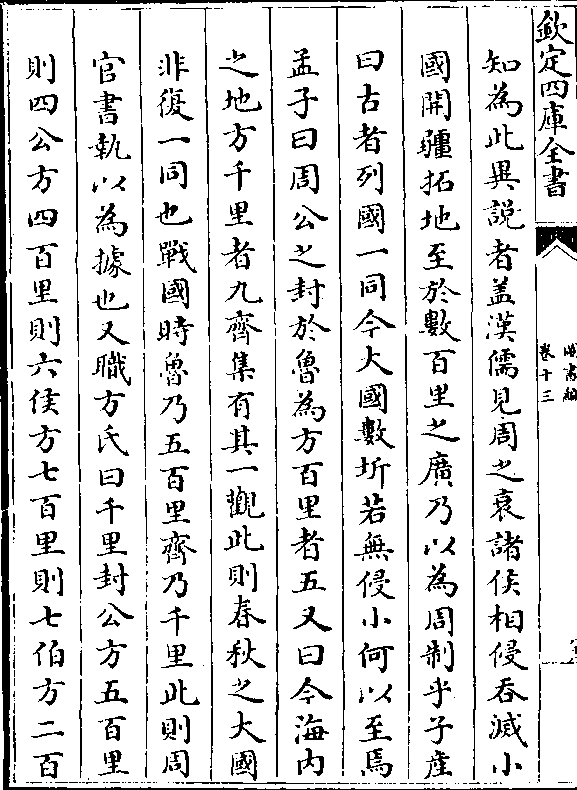 欽定四庫全書
卷十三
知為此異説者盖漢儒見周之衰諸侯相侵吞滅小
國開疆拓地至於數百里之廣乃以為周制乎子産
曰古者列國一同今大國數圻若無侵小何以至焉
孟子曰周公之封於魯為方百里者五又曰今海内
之地方千里者九齊集有其一觀此則春秋之大國
非復一同也戰國時魯乃五百里齊乃千里此則周
官書執以為據也又職方氏曰千里封公方五百里
則四公方四百里則六侯方七百里則七伯方二百